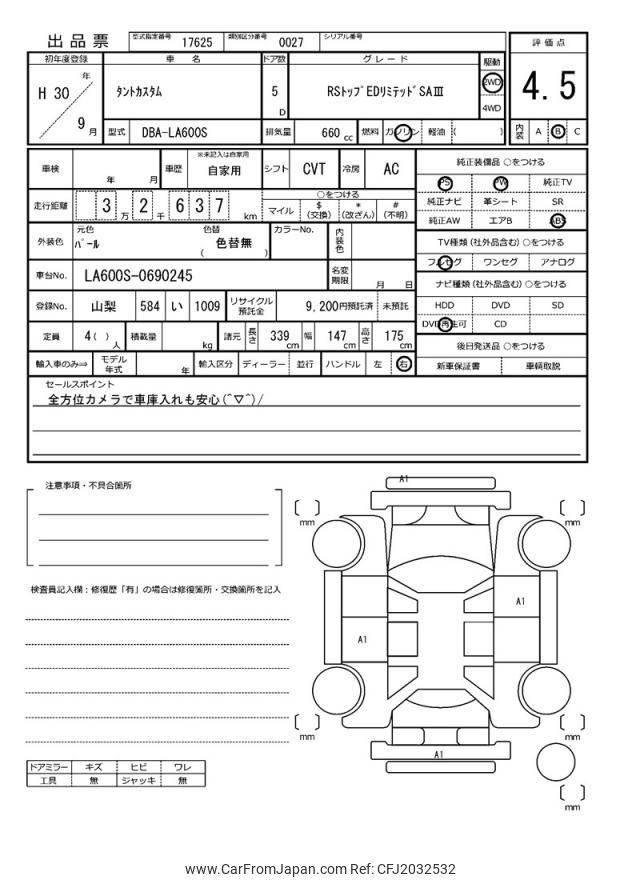 出品票 型式指定番号 17625 類別区分番号 0027 シリアル番号
初年度登録 車名 ドア数 グレード 駆動 評価点
H 30 年 9 月 タントカスタム 5 D RSトップEDリミテッドSAⅢ 2WD 4WD 4.5
型式 DBA-LA600S 排気量 660 cc 燃料 ガソリン 軽油 ( ) 内装 A B C
車検 年 月 車歴 ※未記入は自家用 自家用 シフト CVT 冷房 AC
走行距離 3 万 2 千 6 3 7 km ○をつける
マイル $ (交換) * (改ざん) # (不明)
外装色 元色 パール 色替 色替無 ( ) カラーNo. 内装色
車台No. LA600S-0690245 名変期限 月 日
登録No. 山梨 584 い 1009 リサイクル預託金 9,200円預託済 未預託
定員 4 ( ) 人 積載量 kg 諸元 長さ 339 cm 幅 147 cm 高さ 175 cm
輸入車のみ⇒ モデル年式 年 輸入区分 ディーラー 並行 ハンドル 左 右
純正装備品 ○をつける
PS PW 純正TV
純正ナビ 革シート SR
純正AW エアB ABS
TV種類 (社外品含む) ○をつける
フルセグ ワンセグ アナログ
ナビ種類 (社外品含む) ○をつける
HDD DVD SD
DVD再生可 CD
後日発送品 ○をつける
新車保証書 車輌取説
セールスポイント
全方位カメラで車庫入れも安心(^▽^)/
注意事項・不具合箇所
検査員記入欄:修復歴「有」の場合は修復箇所・交換箇所を記入
ドアミラー キズ ヒビ ワレ
工具 無 ジャッキ 無
A1
mm mm
A1
A1
mm mm
A1
mm
www.CarFromJapan.com Ref: CFJ2032532